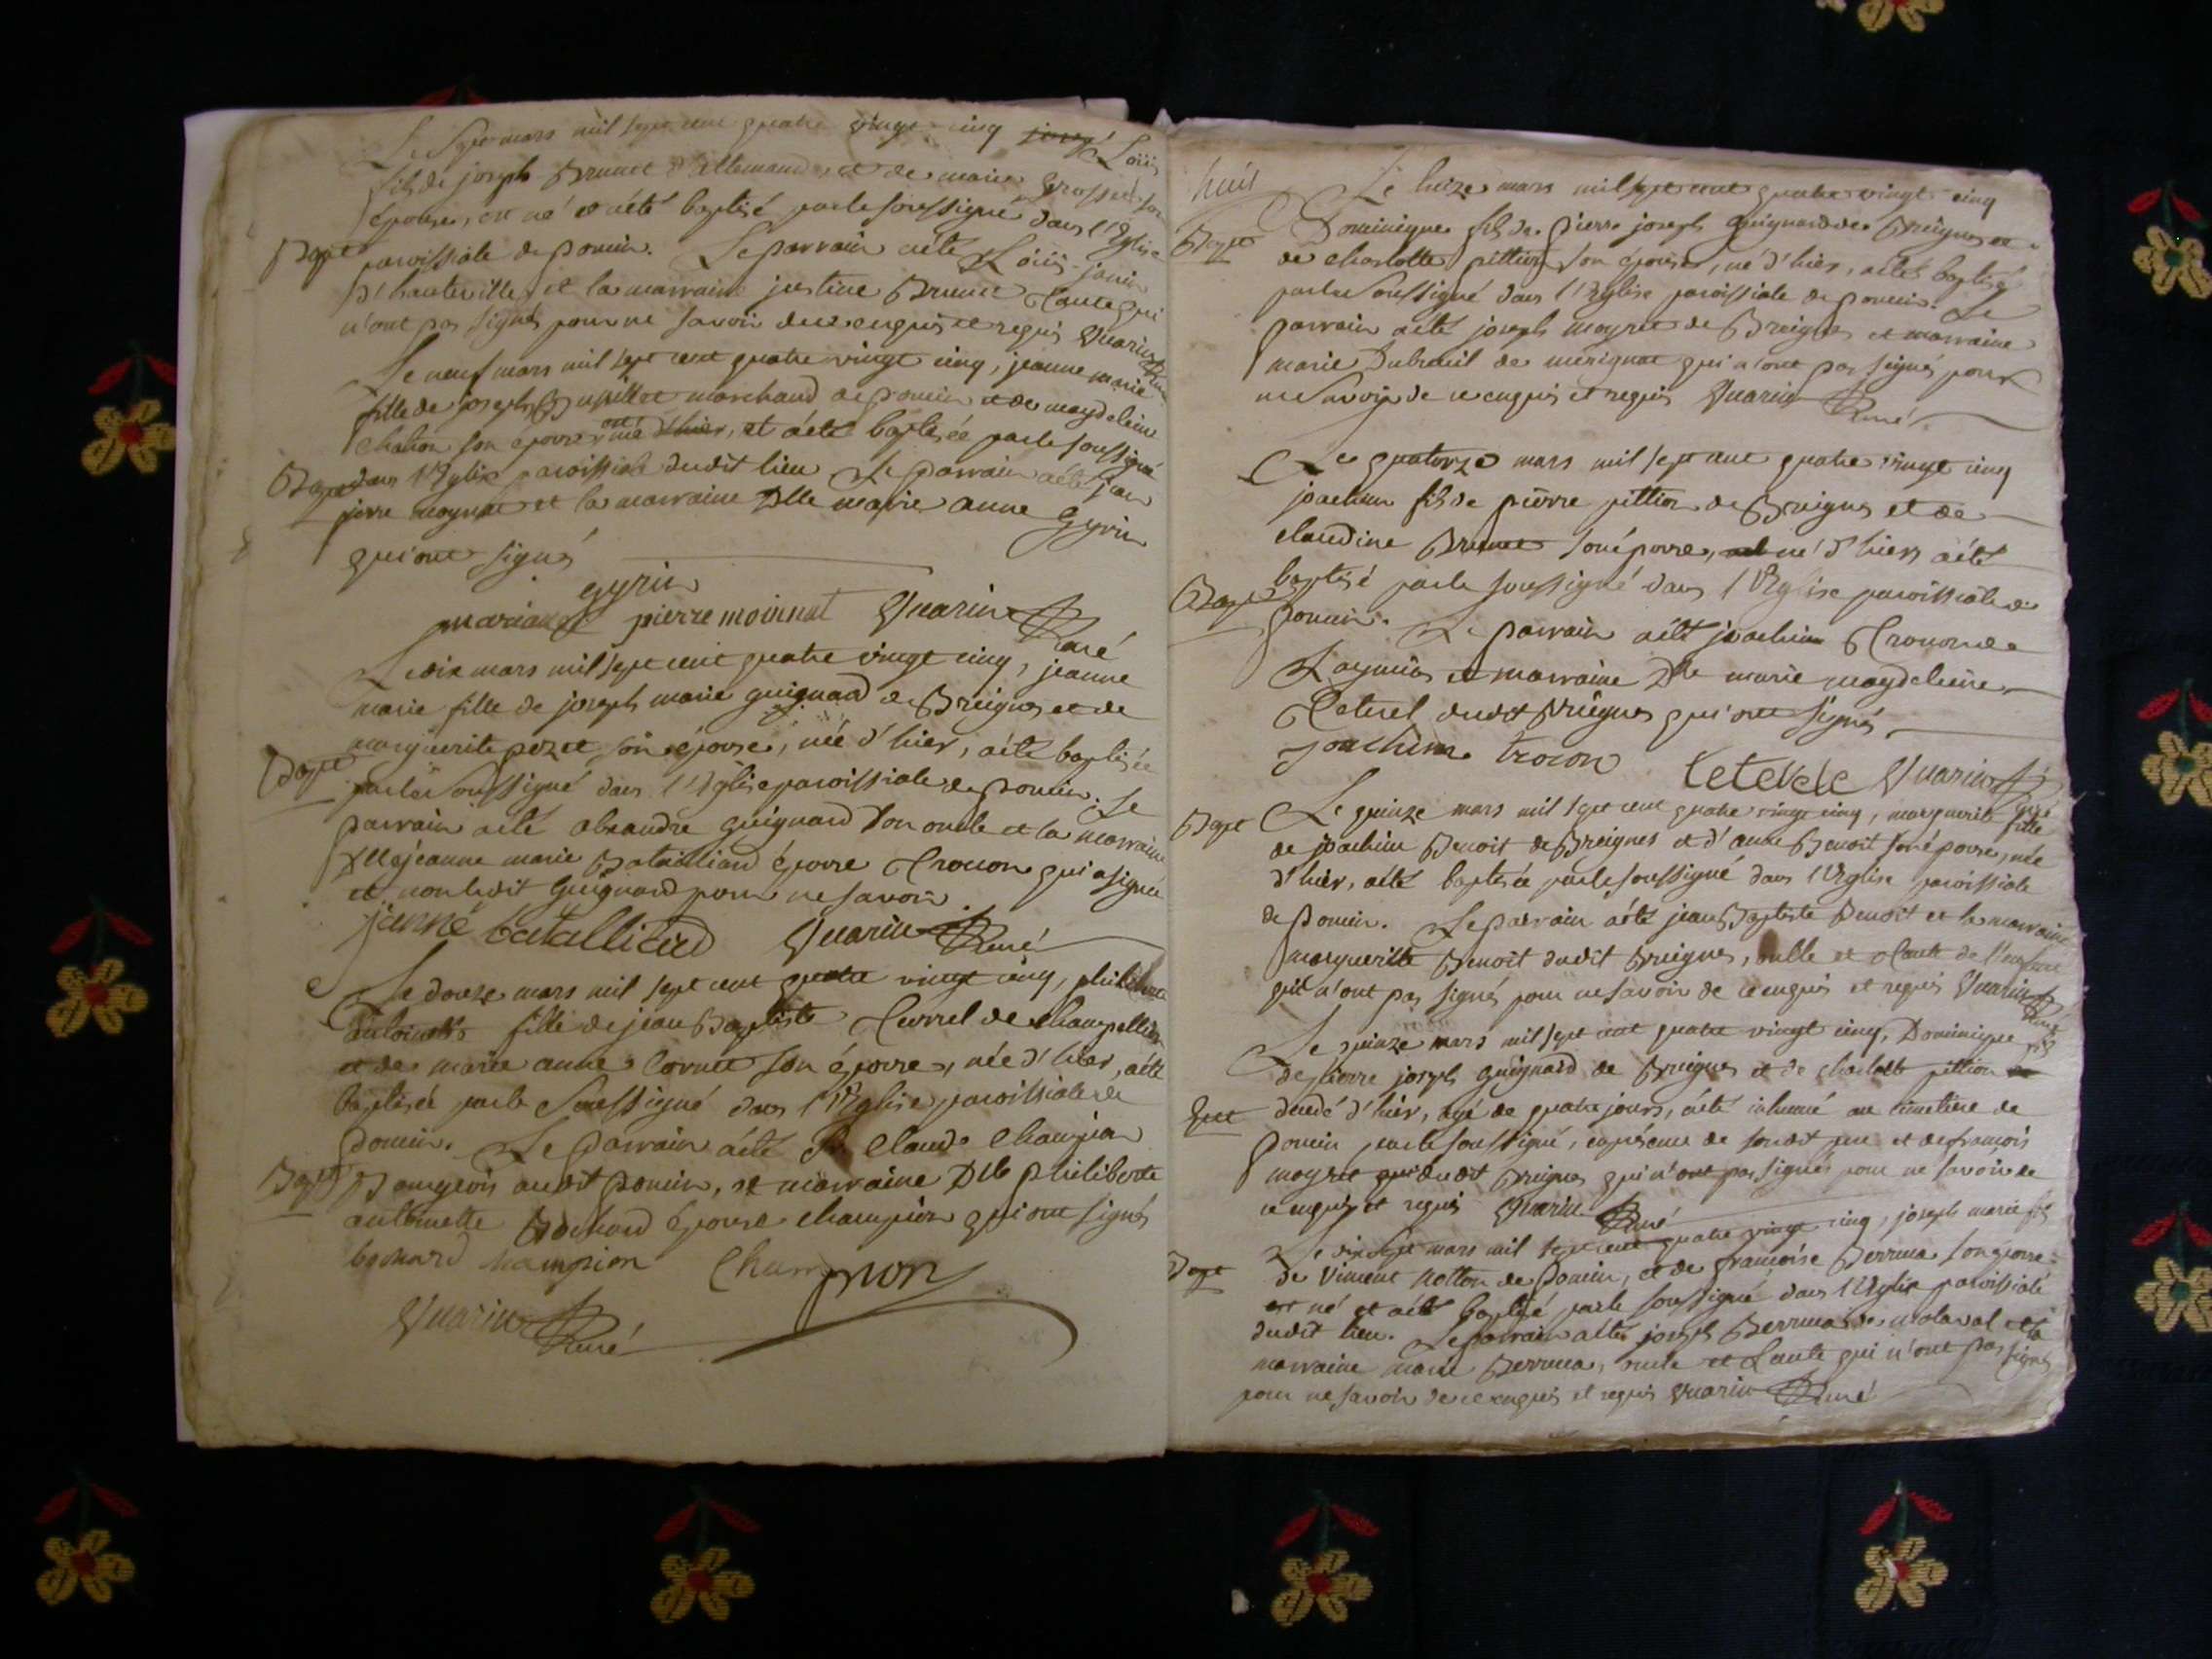 Le sept mars mil sept cent quatre vingt cinq Loüis
fils de joseph Brunet d'allemand et de marie son
épouse, est né et a été baptisé par le soussigné dans l'Eglise
Bapt paroissiale de poncin. Le parrain a été Loüis janin
d'hauteville et la marraine justine Brunet tante qui
n'ont pas signés pour ne savoir de ce enquis et requis Guarin curé
Le neuf mars mil sept cent quatre vingt cinq, jeanne marie
fille de joseph marchand de poncin et de magdeleine
chalion son épouse est née, et a été baptisée par le soussigné
Bapt dans l'Eglise paroissiale dudit lieu Le parrain a été jean
pierre moynat et la marraine Dlle marie anne Gyrin
qui ont signés
gyrin
mariane pierre moinnat Guarin curé
Le dix mars mil sept cent quatre vingt cinq, jeanne
marie fille de joseph marie guignard de Breignes et de
marguerite pozet son épouse, née d'hier, a été baptisée
Bapt par le soussigné dans l'Eglise paroissiale de poncin. Le
parrain a été alexandre guignard son oncle et la marraine
Dlle jeanne marie Batailliard épouse Trocon qui a signée
et non ledit guignard pour ne savoir
janne batallitard Guarin curé
Le douze mars mil sept cent quatre vingt cinq, philiberte
antoinette fille de jean Baptiste Currel de champellion
et de marie anne Cornet son épouse, née d'hier, a été
baptisée par le soussigné dans l'Eglise paroissiale de
poncin. Le parrain a été Sr. Claude champion
Bapt Bourgeois audit poncin, et marraine Dlle philiberte
antoinette Bochard épouse champion qui ont signés
bochard champion Champion
Guarin curé
huit
Le treize mars mil sept cent quatre vingt cinq
Dominique fils de pierre joseph guignard de Breignes et
Bapt de charlotte pittion son épouse, né d'hier, a été baptisé
par le soussigné dans l'Eglise paroissiale de poncin. Le
parrain a été joseph moyret de Breignes et marraine
marie Dubreuil de merignat qui n'ont pas signés pour
ne savoir de ce enquis et requis Guarin curé
Le quatorze mars mil sept cent quatre vingt cinq
joachim fils de pierre pittion de Breignes et de
claudine Brunet son épouse, né d'hier a été
Bapt baptisé par le soussigné dans l'Eglise paroissiale de
poncin. Le parrain a été joachim Trocon de
Leymiat et marraine Dlle marie magdeleine
Tetevel dudit Breignes qui ont signés
joachim trocon tetevele Guarin curé
Bapt Le quinze mars mil sept cent quatre vingt cinq, marguerite fille
de joachim Benoit de Breignes et d'anne Benoit son épouse, née
d'hier, a été baptisée par le soussigné dans l'Eglise paroissiale
de poncin. Le parrain a été jean Baptiste Benoit et la marraine
margueritte Benoit dudit Breignes, oncle et tante de l'enfant
qui n'ont pas signés pour ne savoir de ce enquis et requis Guarin curé
Le quinze mars mil sept cent quatre vingt cinq, Dominique fils
de pierre joseph guignard de Breignes et de charlotte pittion
decedé d'hier, agé de quatre jours, a été inhumé au cimetière de
poncin par le soussigné, en présence de sondit pere et de françois
moyret dudit Breignes qui n'ont pas signés pour ne savoir de
ce enquis et requis Guarin curé
Le dix sept mars mil sept cent quatre vingt cinq, joseph marie fils
Bapt de vincent Notton de poncin, et de françoise Berruea son épouse
est né et a été baptisé par le soussigné dans l'Eglise paroissiale
dudit lieu. Le parrain a été joseph Berruea de et la
marraine marie Berruea, oncle et tante qui n'ont pas signés
pour ne savoir de ce enquis et requis Guarin curé